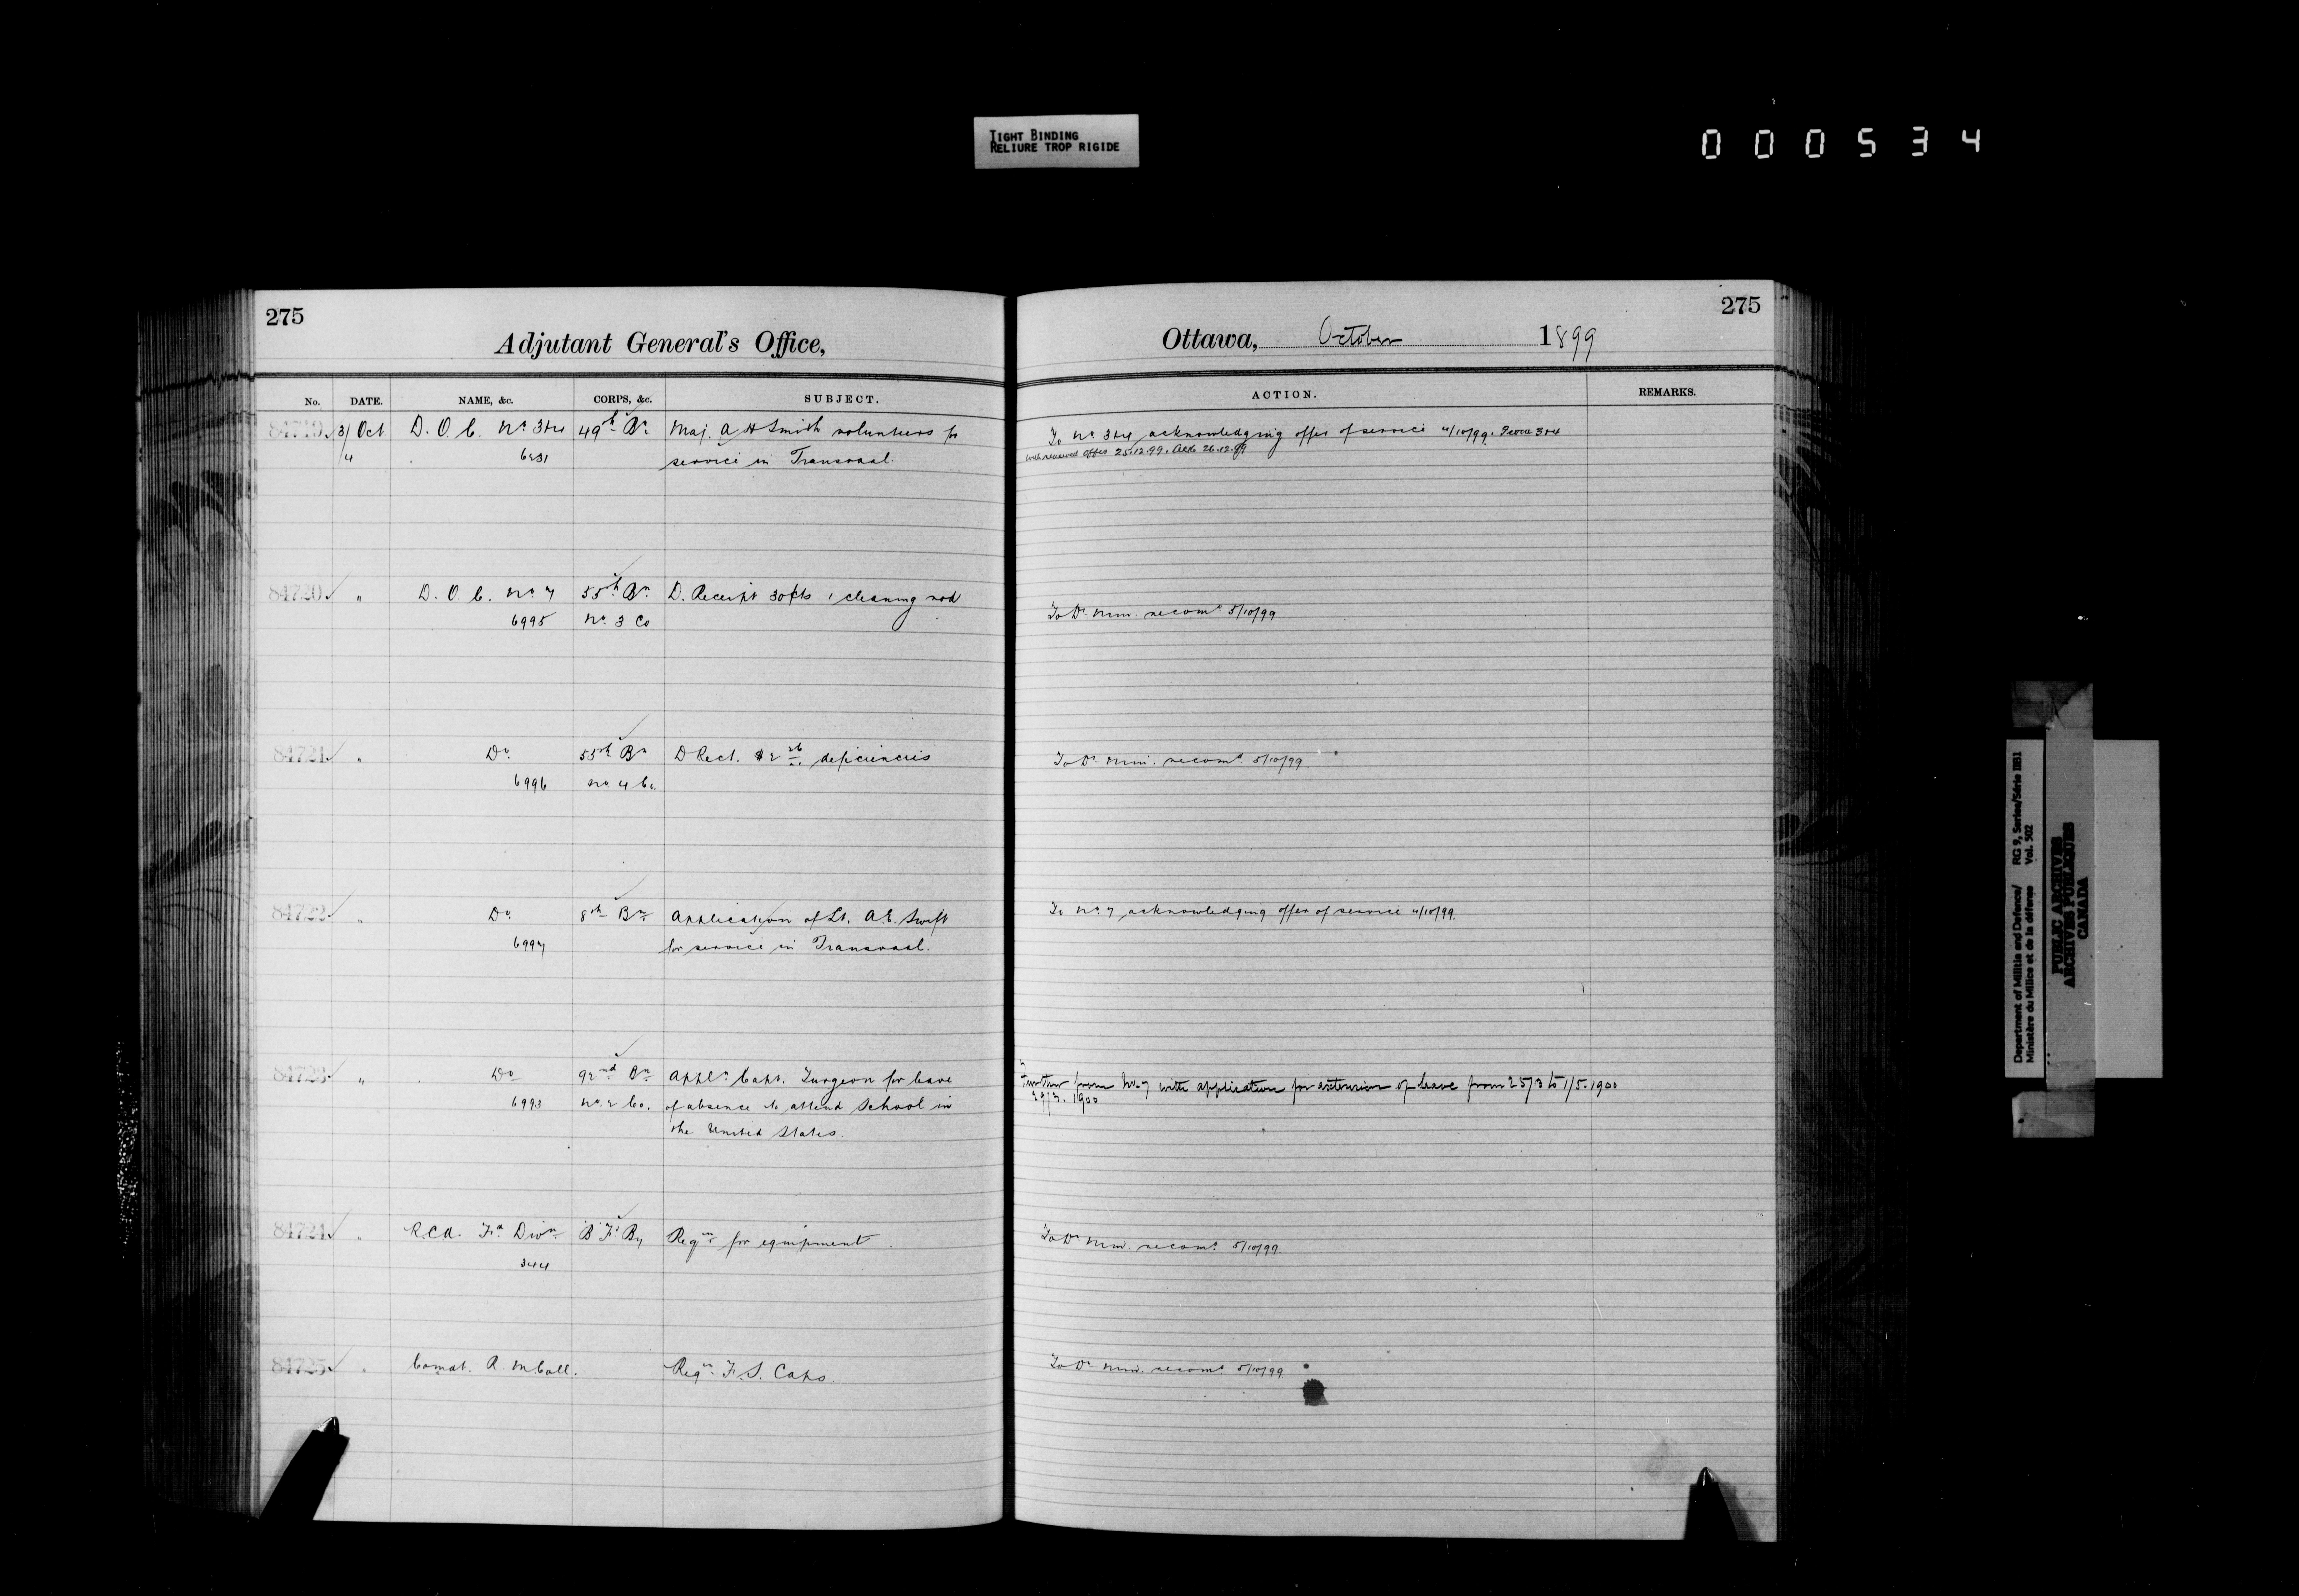 TIGHT BINDING
RELIURE TROP RIGIDE
000534
275
Adjutant General's Office,
No. DATE. NAME, &c. CORPS, &c. SUBJECT.
84719 3/ Oct D. O. C. No 3&4 49th Bn Maj. A H Smith volunteers for
4 6231 service in Transvaal.
84720 " D. O. C. No 7 55th Bn D. Receipt 30cts 1 cleaning rod
6995 No 3 Co
84721 " Do 55th Bn D Rect. $2 26 deficiencies
6996 No 4 Co.
84722 " Do 8th Bn Application of Lt. A.E. Swift
6997 for service in Transvaal.
84723 " Do 92nd Bn Appln Capt. Turgeon for leave
6993 No 2 Co. of absence to attend School in
the United States.
84724 " R.C.A. Fd Divn "B" Fd By Reqn for equipment
344
84725 " Comdt. R. M Coll. Reqn F.S. Caps.
275
Ottawa, October 1899
ACTION. REMARKS.
To No 3&4 acknowledging offer of service 4/10/99. From 3&4
with renewed offer 25.12.99. Ack 26.12.99
To Dr. Min. recomd 5/10/99
To Dr. Min. recomd 5/10/99
To No 7 acknowledging offer of service 4/10/99.
Further from No. 7 with application for extension of leave from 25/3 to 1/5.1900
29/3. 1900
To Dr. Min. recomd 5/10/99.
To Dr. Min. recomd 5/10/99
Department of Militia and Defence/ RG 9, Series/Série IIB1
Ministère du Milice et de la défense Vol. 502
PUBLIC ARCHIVES
ARCHIVES PUBLIQUES
CANADA